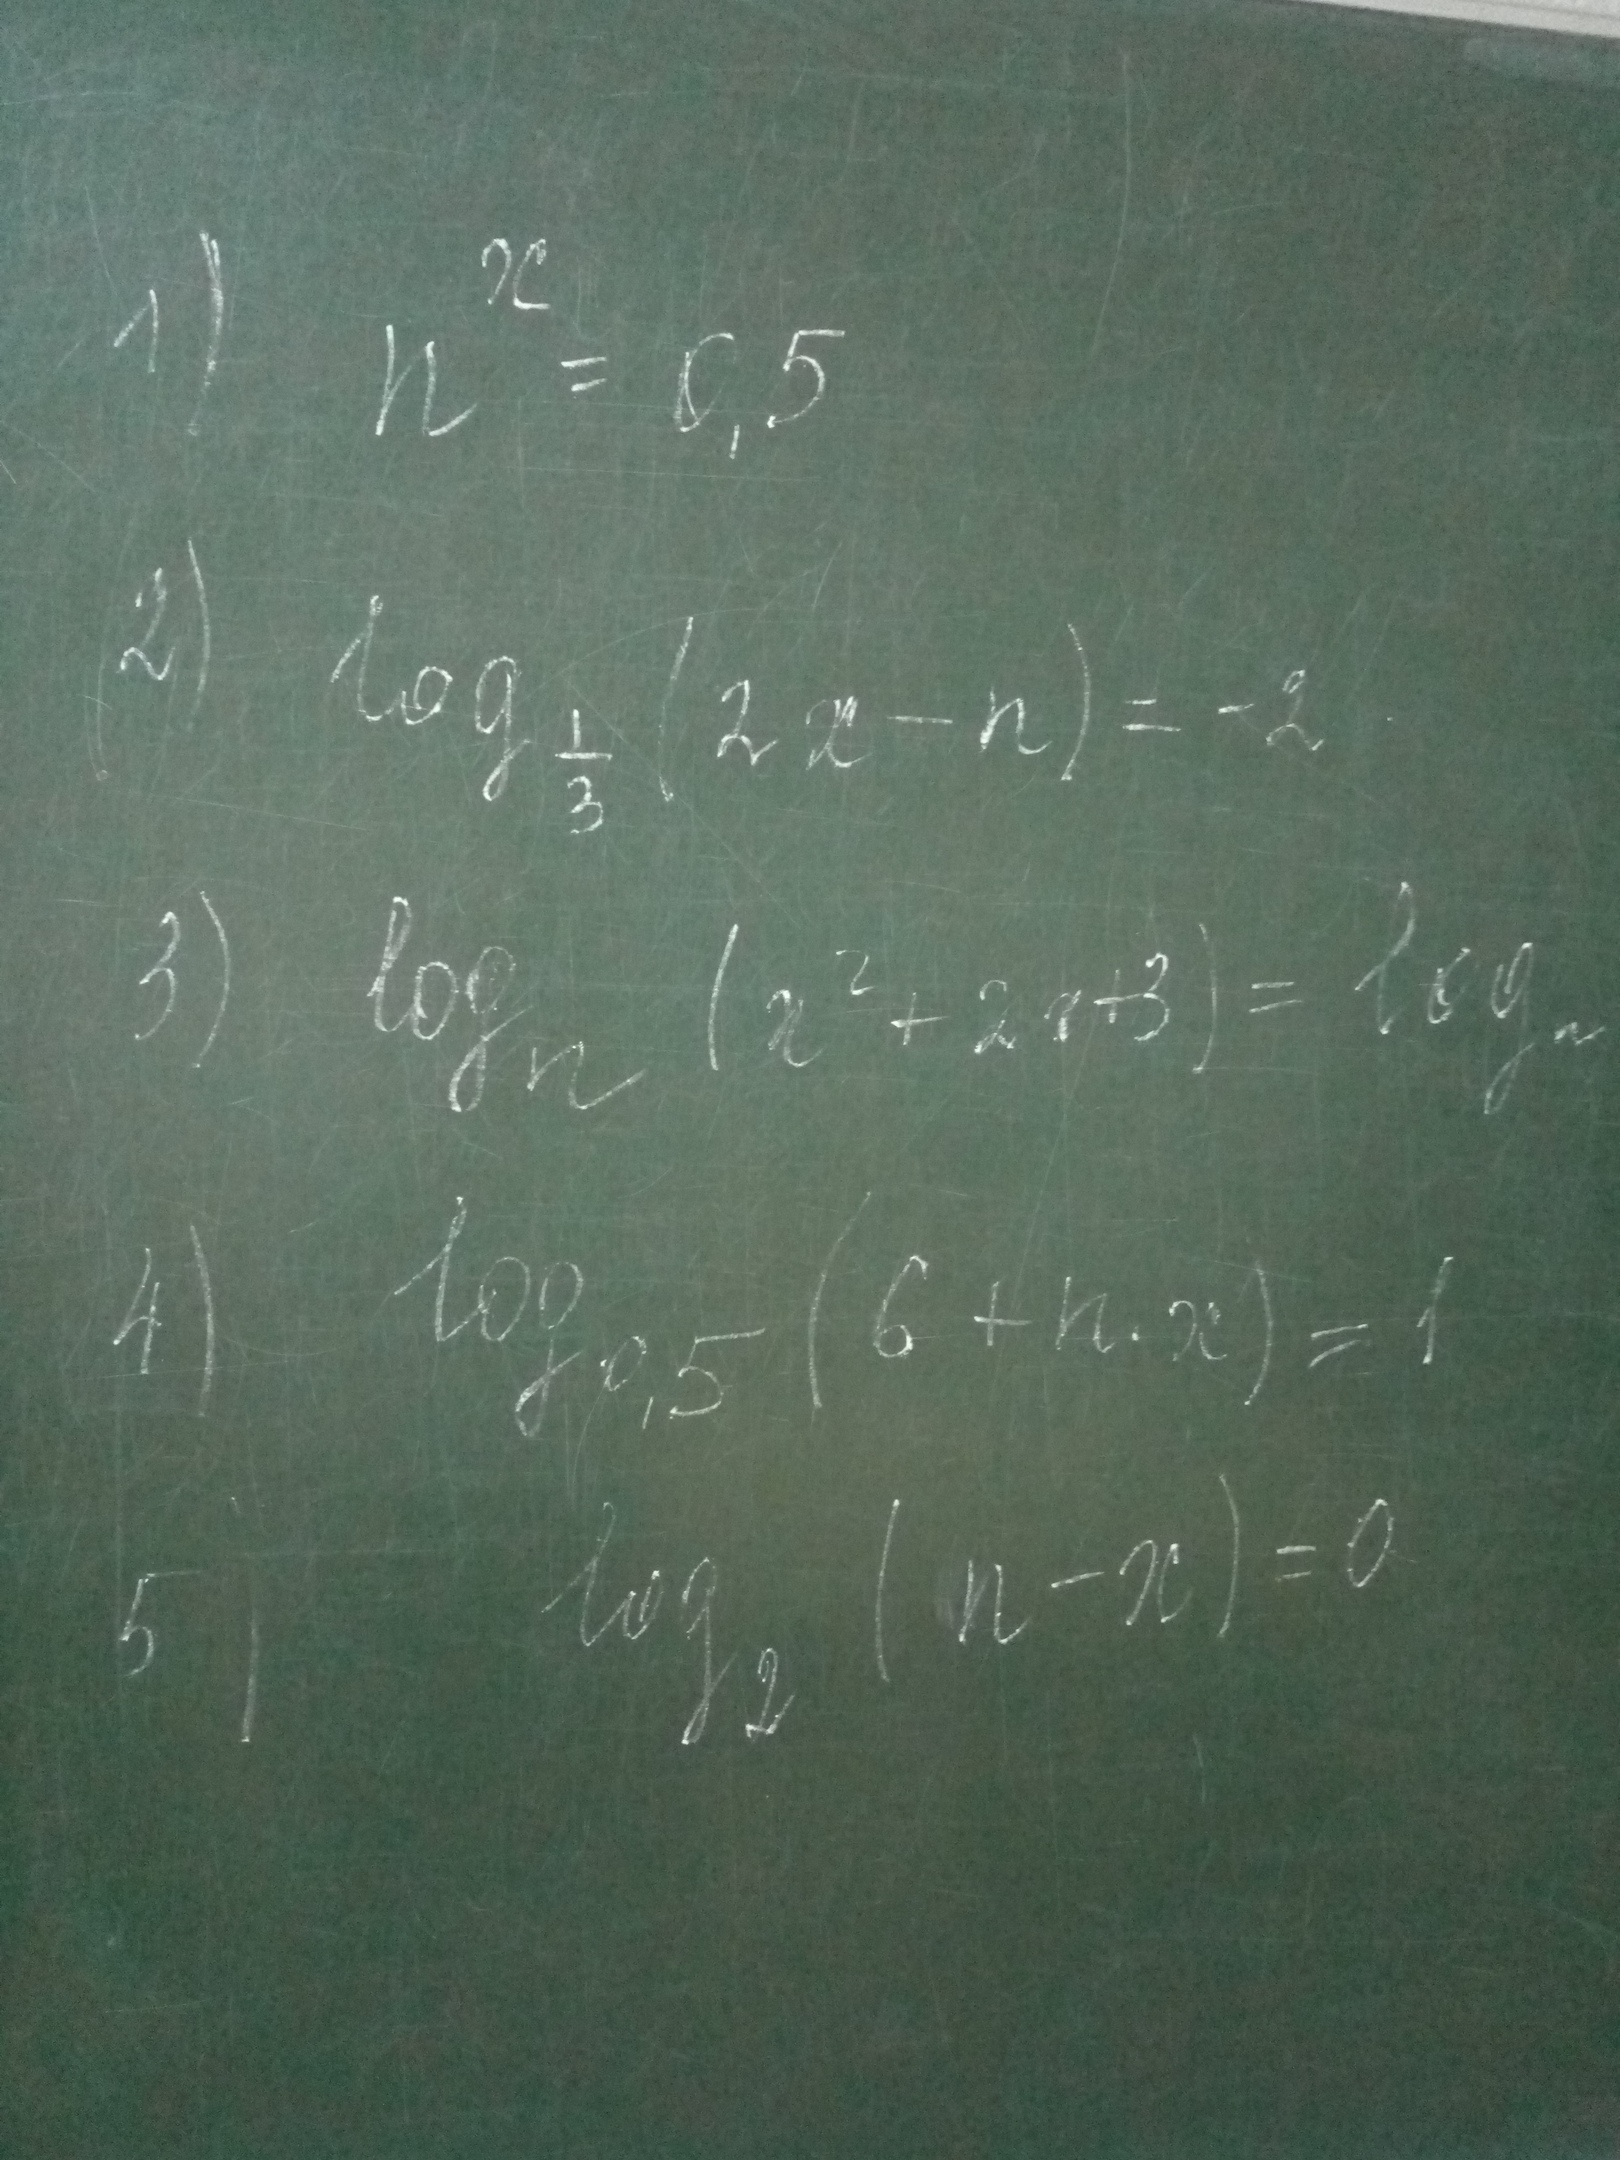 1) n^x = 0,5
2) log_{1/3} (2x - n) = -2
3) log_n (x² + 2x + 3) = log_n
4) log_{0,5} (6 + n · x) = 1
5) log_2 (n - x) = 0